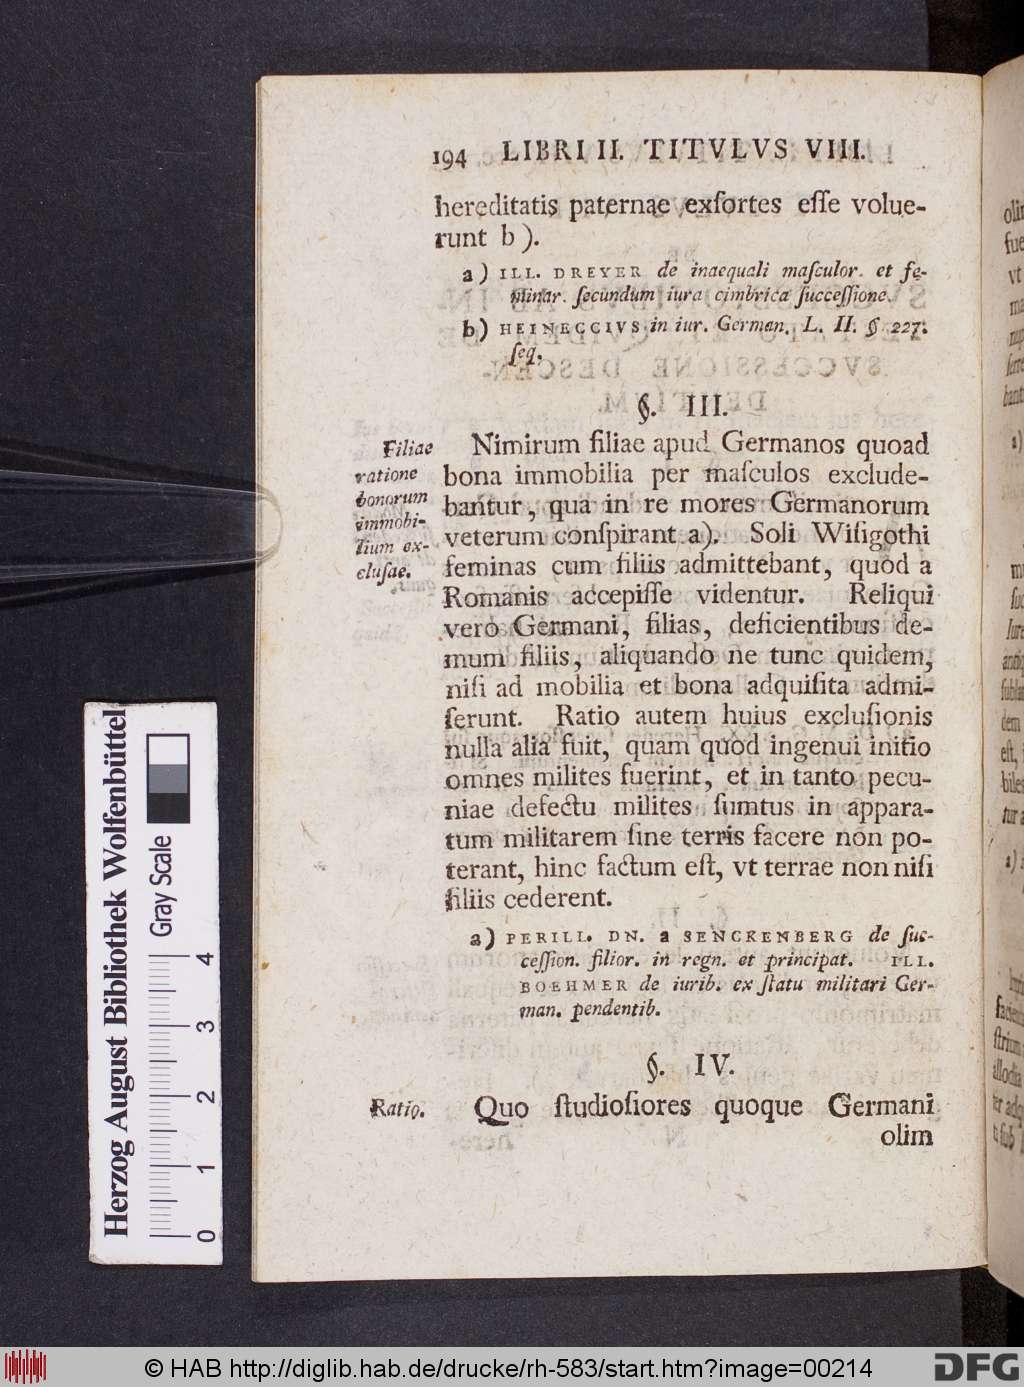 194 LIBRI II. TITVLVS VIII.
hereditatis paternae exſortes eſſe volue-
runt b).
a) ILL. DREYER de inaequali maſculor. et fe-
minar. ſecundum iura cimbrica ſucceſſione.
b) HEINECCIVS in iur. German. L. II. § 227.
ſeq.
§. III.
Filiae
ratione
bonorum
immobi-
lium ex-
cluſae.
Nimirum filiae apud Germanos quoad
bona immobilia per maſculos exclude-
bantur, qua in re mores Germanorum
veterum conſpirant a). Soli Wiſigothi
feminas cum filiis admittebant, quod a
Romanis accepiſſe videntur. Reliqui
vero Germani, filias, deficientibus de-
mum filiis, aliquando ne tunc quidem,
niſi ad mobilia et bona adquiſita admi-
ſerunt. Ratio autem huius excluſionis
nulla alia fuit, quam quod ingenui initio
omnes milites fuerint, et in tanto pecu-
niae defectu milites ſumtus in appara-
tum militarem ſine terris facere non po-
terant, hinc factum eſt, vt terrae non niſi
filiis cederent.
a) PERILL. DN. a SENCKENBERG de ſuc-
ceſſion. filior. in regn. et principat. ILL.
BOEHMER de iurib. ex ſtatu militari Ger-
man. pendentib.
§. IV.
Ratio.
Quo ſtudioſiores quoque Germani
olim
Herzog August Bibliothek Wolfenbüttel
Gray Scale
0 1 2 3 4
© HAB http://diglib.hab.de/drucke/rh-583/start.htm?image=00214
DFG